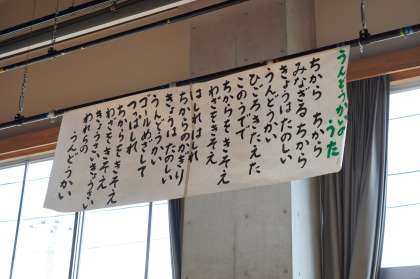 うんどうかいの うた
ちから ちから
みなぎる ちから
きょうは たのしい
うんどうかい
ひごろ きたえた
このうでで
ちからもきそえ
わざもきそえ
はしれ はしれ
ちからの かぎり
きょうは たのしい
うんどうかい
ゴール めざして
つっぱしれ
ちからもきそえ
わざもきそえ
われらの
うんどうかい